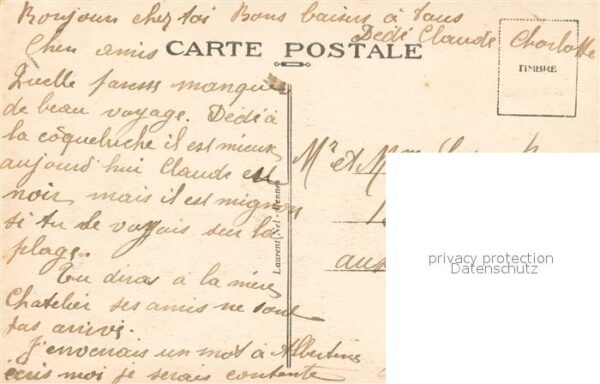 Bonjour chez toi Bons baisers à tous
Dédé Claude Charlotte
Chers amis
CARTE POSTALE
TIMBRE
Quelle manquer
de beau voyage. Dédé à
la côqueluche il est mieux
aujourd hui Claude est
noir mais il est mignon
si tu le voyais sur la
plage.
Tu diras à la mère
Chatelier ses amis ne sont
pas arrivé.
J'envenais un mot à Albertine
écris moi je serais contente
Mr et Mme
Laurent-Nel-Rennes
privacy protection
Datenschutz